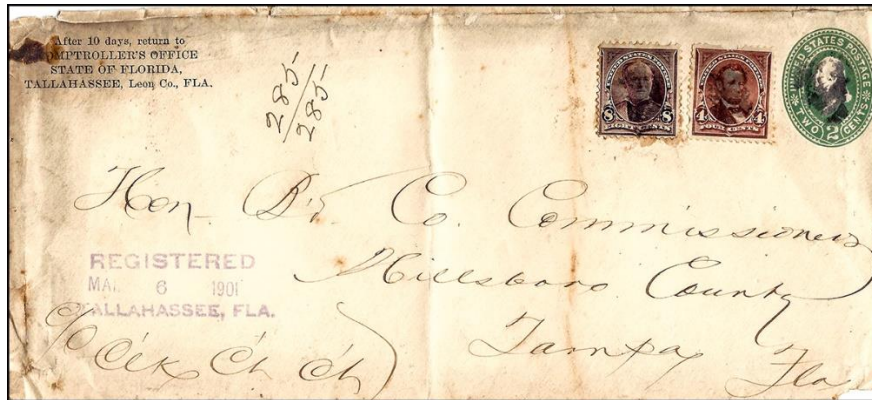 After 10 days, return to
COMPTROLLER'S OFFICE
STATE OF FLORIDA,
TALLAHASSEE, Leon Co., FLA.
285
285
8 8
EIGHT CENTS
4 4
FOUR CENTS
UNITED STATES POSTAGE
TWO 2 CENTS
Hon B'd Co. Commissioners
Hillsboro County
Tampa
Fla
REGISTERED
MAR 6 1901
TALLAHASSEE, FLA.
c/o Clk C't C't